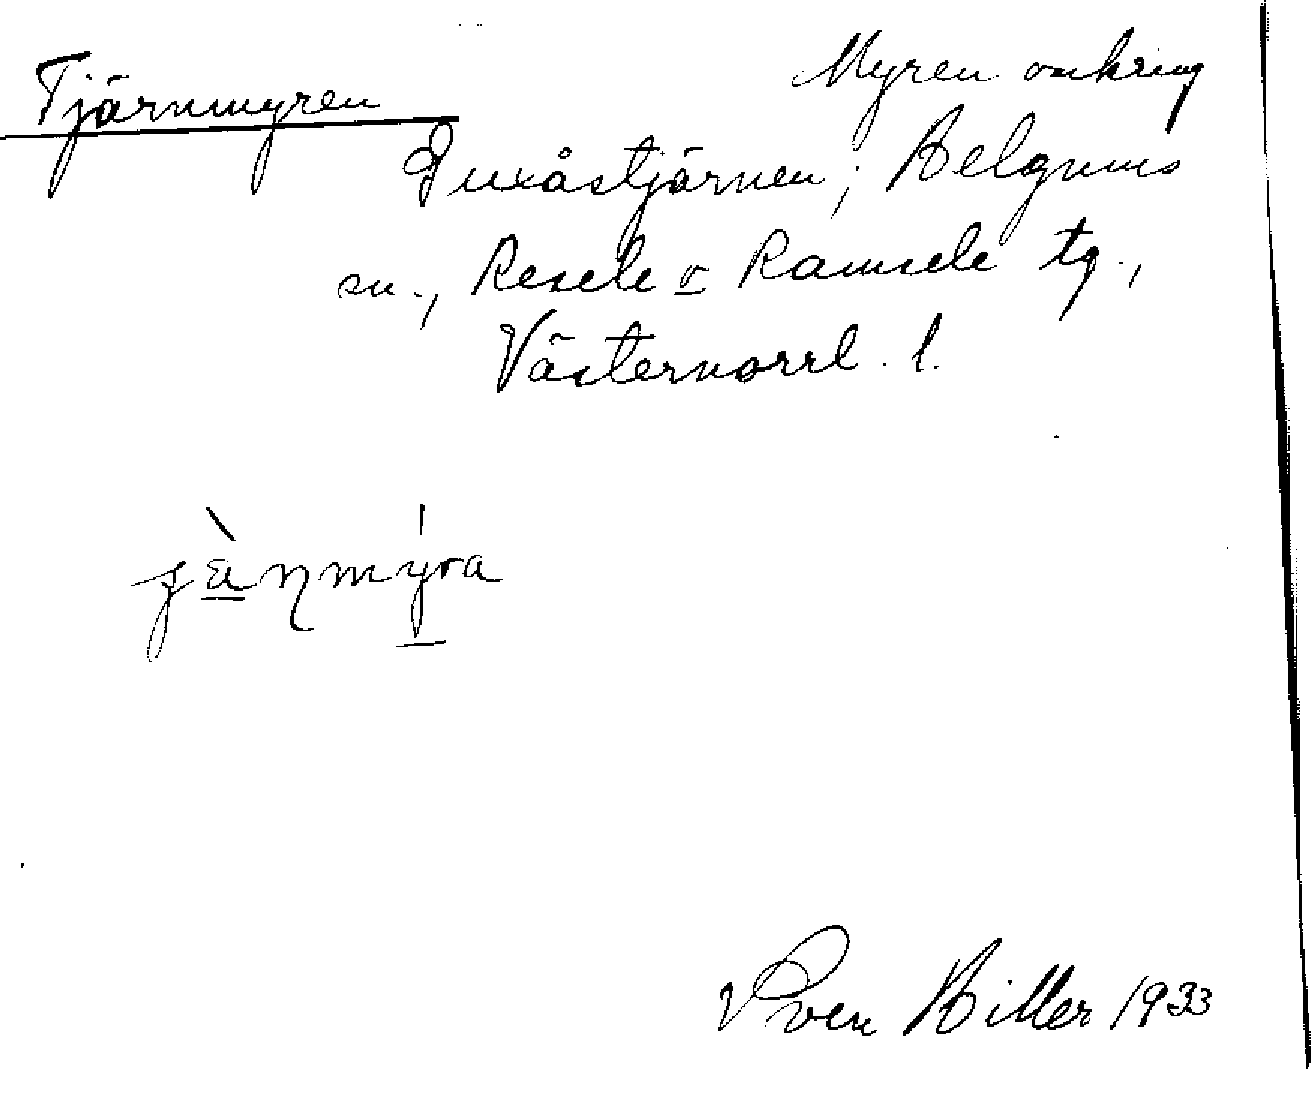 Tjärnmyren
Myren omkring
Guxåstjärnen; Helgums
sn., Resele o Ramsele tg.,
Västernorrl. l.
Sven Hiller 1933